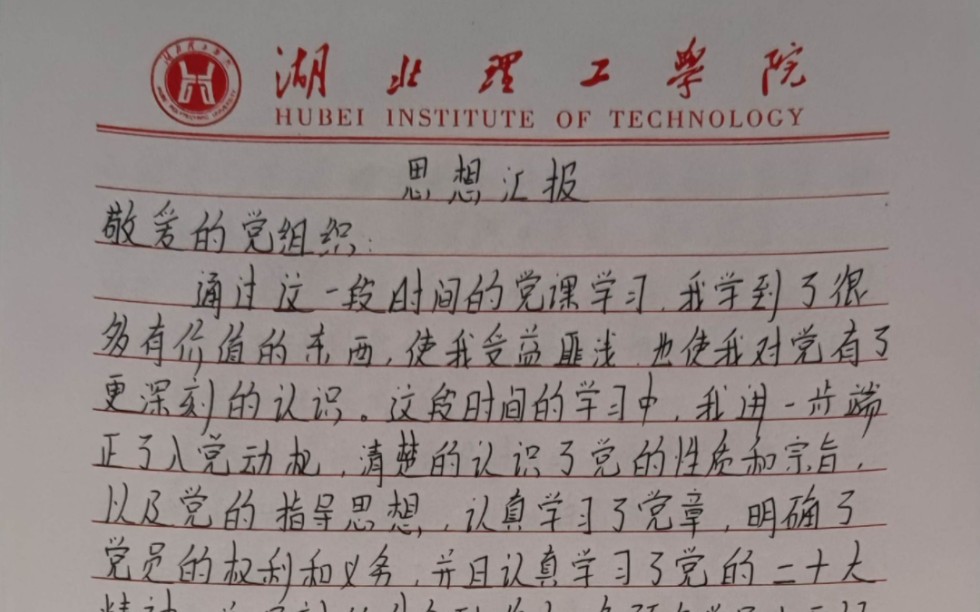 湖北理工学院
HUBEI INSTITUTE OF TECHNOLOGY
思想汇报
敬爱的党组织：
通过这一段时间的党课学习，我学到了很
多有价值的东西，使我受益匪浅，也使我对党有了
更深刻的认识。这段时间的学习中，我进一步端
正了入党动机，清楚的认识了党的性质和宗旨，
以及党的指导思想，认真学习了党章，明确了
党员的权利和义务，并且认真学习了党的二十大